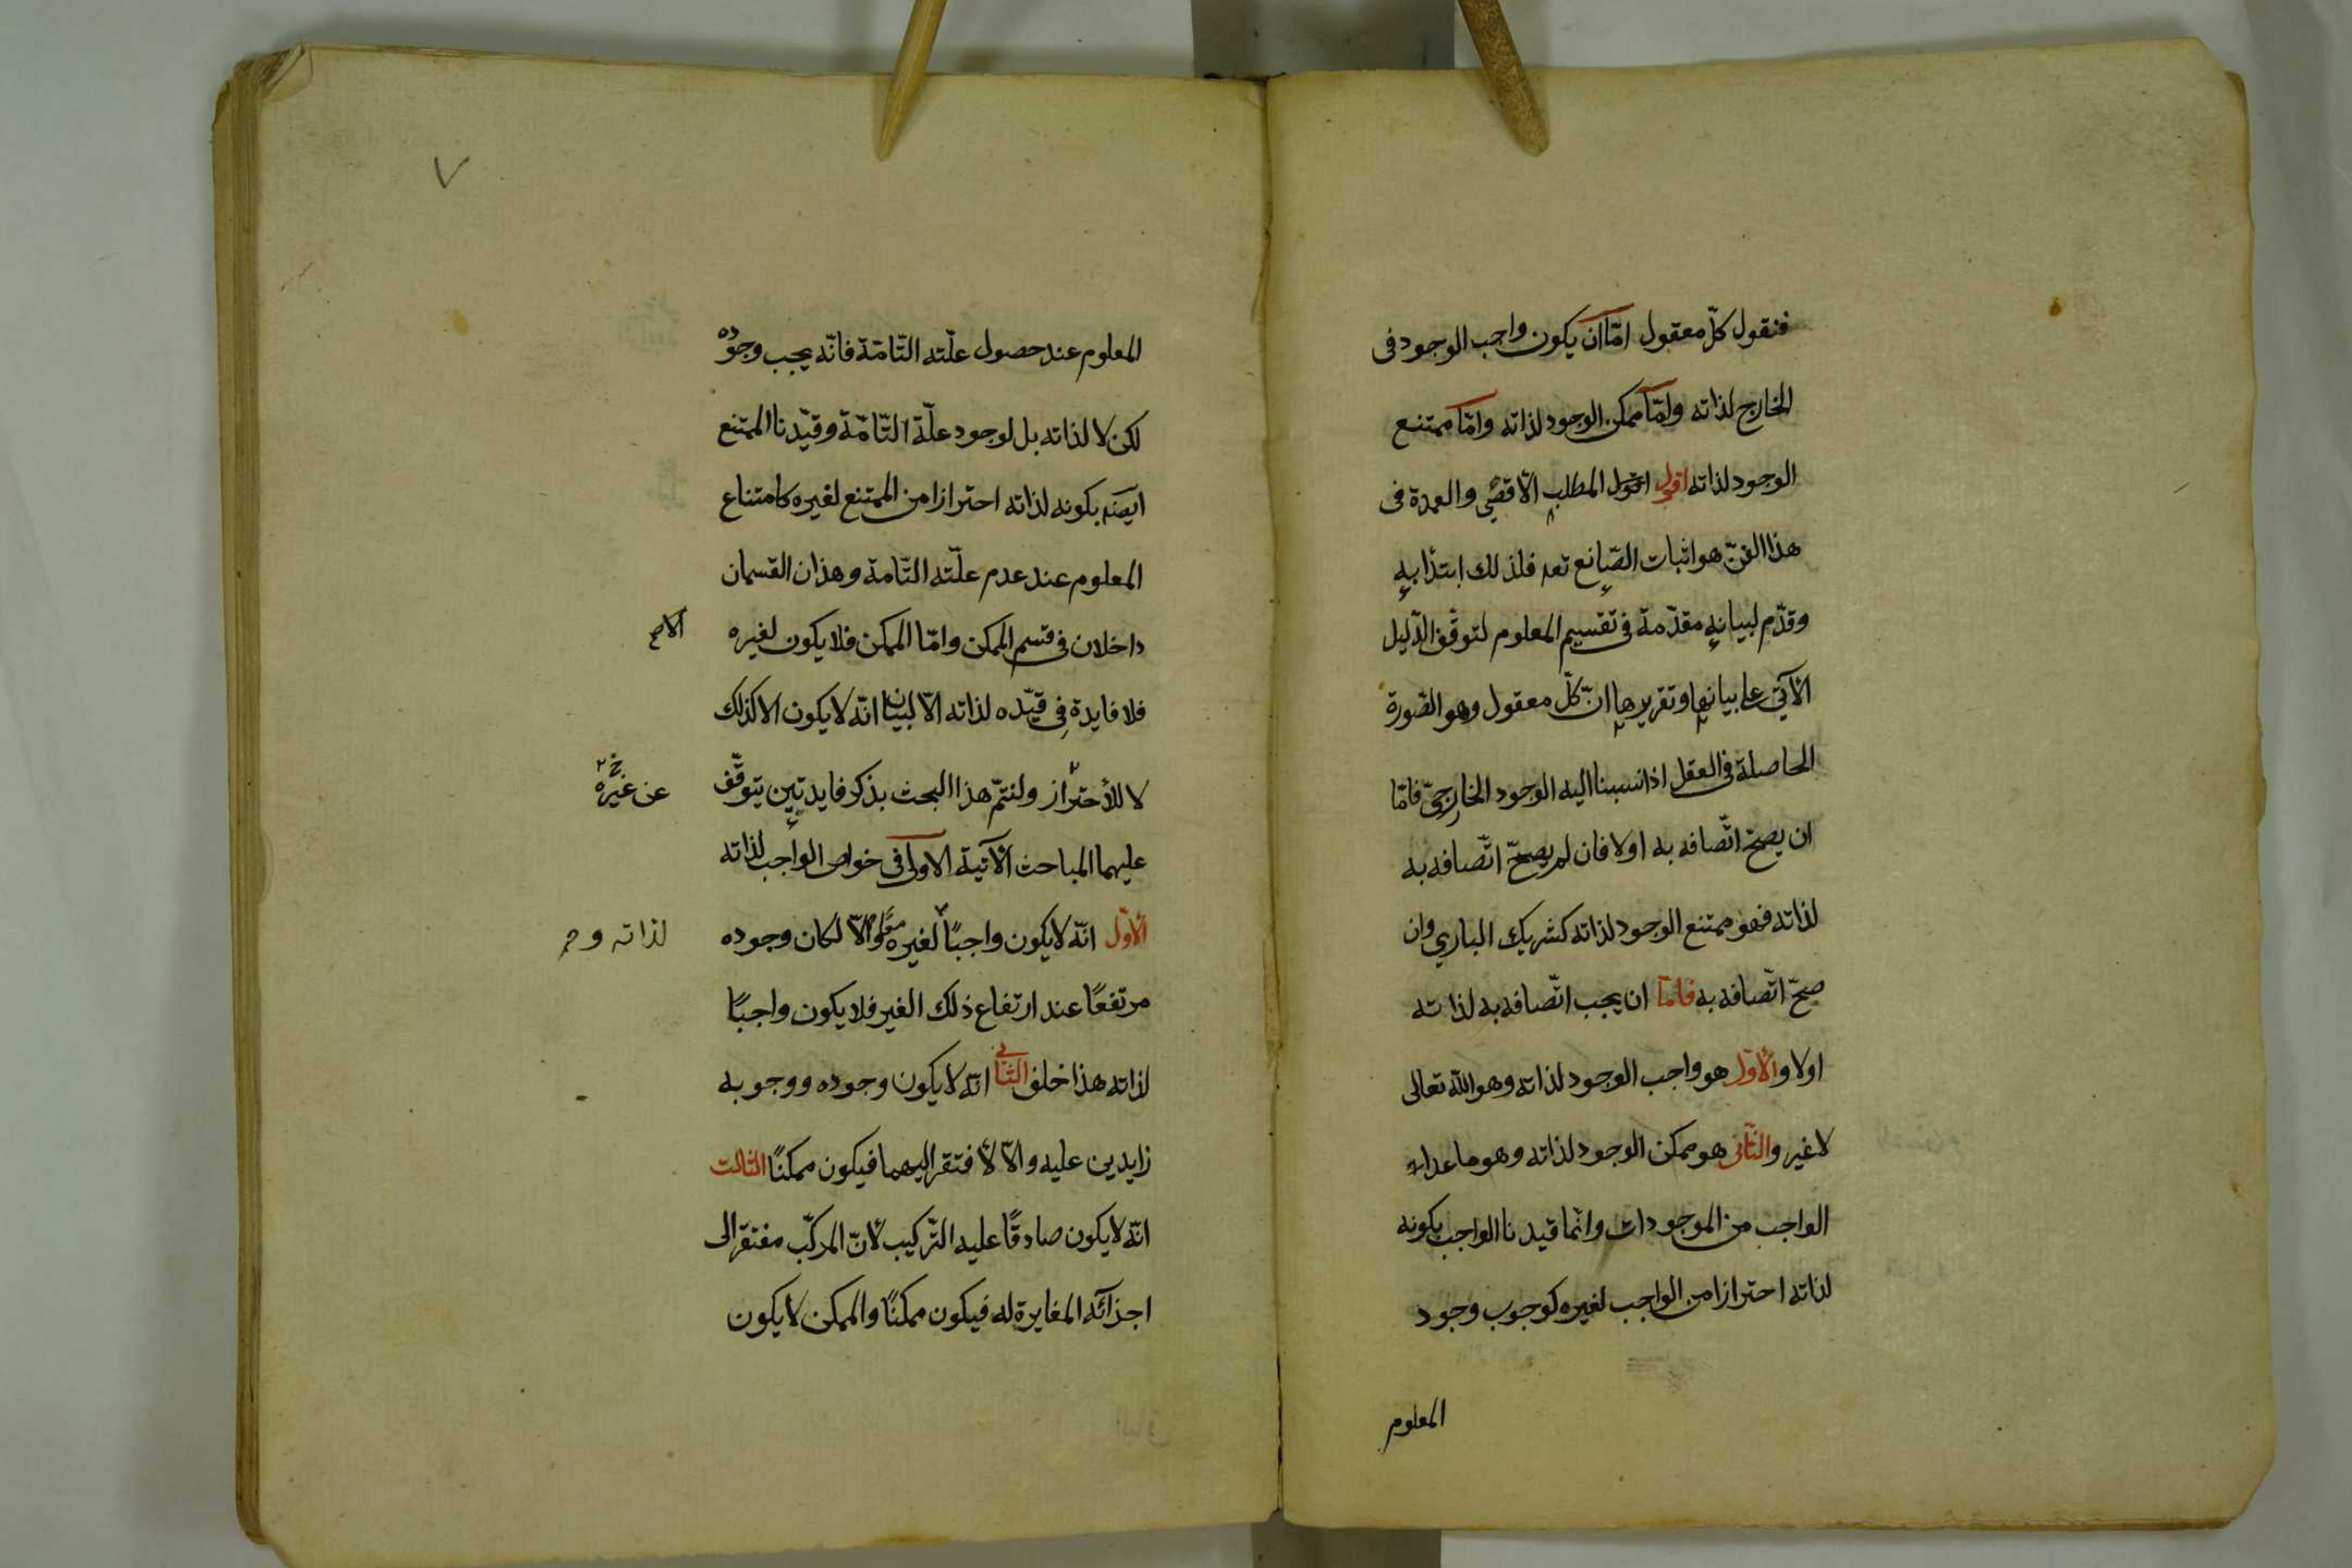 فنقول كلّ معقول امّا ان يكون واجب الوجود فى
الخارج لذاته وامّا ممكن الوجود لذاته وامّا ممتنع
الوجود لذاته اقول اقول المطلب الأقصٰى والعمدة فى
هذا الفنّ هو اثبات الصّانع تعه فلذلك ابتدأ به
وقدّم لبيانه مقدّمة فى تقسيم المعلوم لتوقّف الدّليل
الآتى على بيانها وتقريرها انّ كلّ معقول وهو الصّورة
الحاصلة فى العقل اذا نسبنا اليه الوجود الخارجىّ فامّا
ان يصحّ اتّصافه به اولا فان لم يصحّ اتّصافه به
لذاته فهو ممتنع الوجود لذاته كشريك الباري وان
صحّ اتّصافه به فامّا ان يجب اتّصافه به لذاته
اولا والأوّل هو واجب الوجود لذاته وهو الله تعالى
لا غير والثّانى هو ممكن الوجود لذاته وهو ما عداء
الواجب من الموجودات وانّما قيدنا الواجب بكونه
لذاته احترازا من الواجب لغيره كوجوب وجود
المعلوم
٧
المعلوم عند حصول علّته التّامّة فانّه يجب وجوده
لكن لا لذاته بل لوجود علّة التّامّة وقيّدنا الممتنع
ايضه بكونه لذاته احترازا من الممتنع لغيره كامتناع
المعلوم عند عدم علّته التّامة وهذان القسمان
داخلان فى قسم الممكن وامّا الممكن فلا يكون لغيره
فلا فايدة فى قيّده لذاته الّا لبيان انّه لا يكون الا كذلك
لا للأحتراز ولنتمّ هذا البحث بذكر فايدتين يتوقّف
عن غيره خ
عليهما المباحث الآتية الاولى فى خواص الواجب لذاته
الأوّل انّه لا يكون واجبًا لغيره معًا والّا لكان وجوده
لذاته و
مرتفعًا عند ارتفاع ذلك الغير فلا يكون واجبًا
لذاته هذا خلف الثّانى انّه لا يكون وجوده ووجوبه
زايدين عليه والّا لأفتقر اليهما فيكون ممكنًا الثالث
انّه لا يكون صادقًا عليه التّركيب لأنّ المركّب مفتقر الى
اجزآئه المغايرة له فيكون ممكنًا والممكن لا يكون